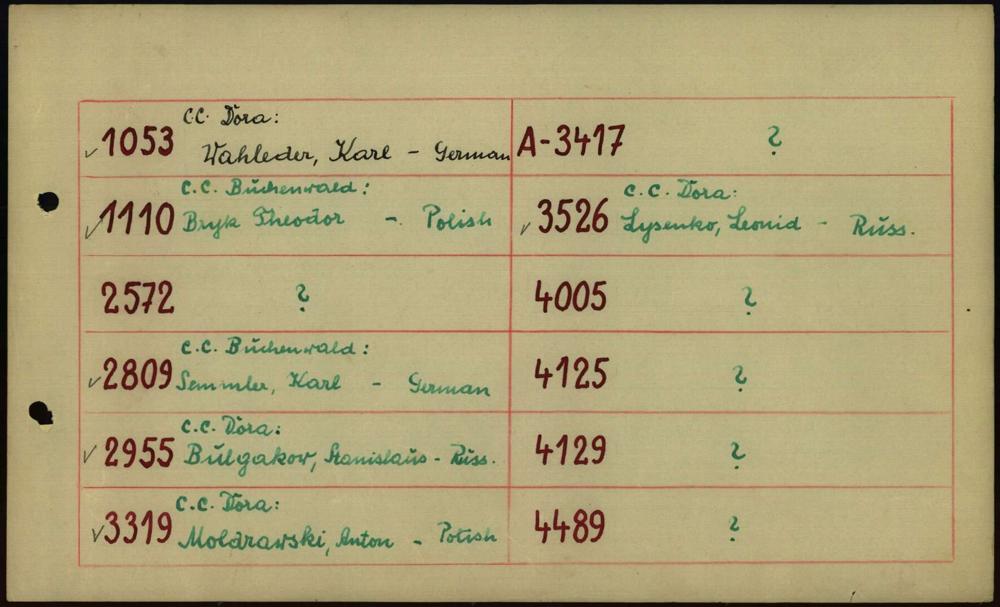 C.C. Dora:
✓1053 Wahleder, Karl - German
A-3417 ?
C.C. Buchenwald:
✓1110 Bryk Theodor - Polish
C.C. Dora:
✓3526 Lysenko, Leonid - Russ.
2572 ?
4005 ?
C.C. Buchenwald:
✓2809 Semmler, Karl - German
4125 ?
C.C. Dora:
✓2955 Bulgakow, Stanislaus - Russ.
4129 ?
C.C. Dora:
✓3319 Moldrawski, Anton - Polish
4489 ?